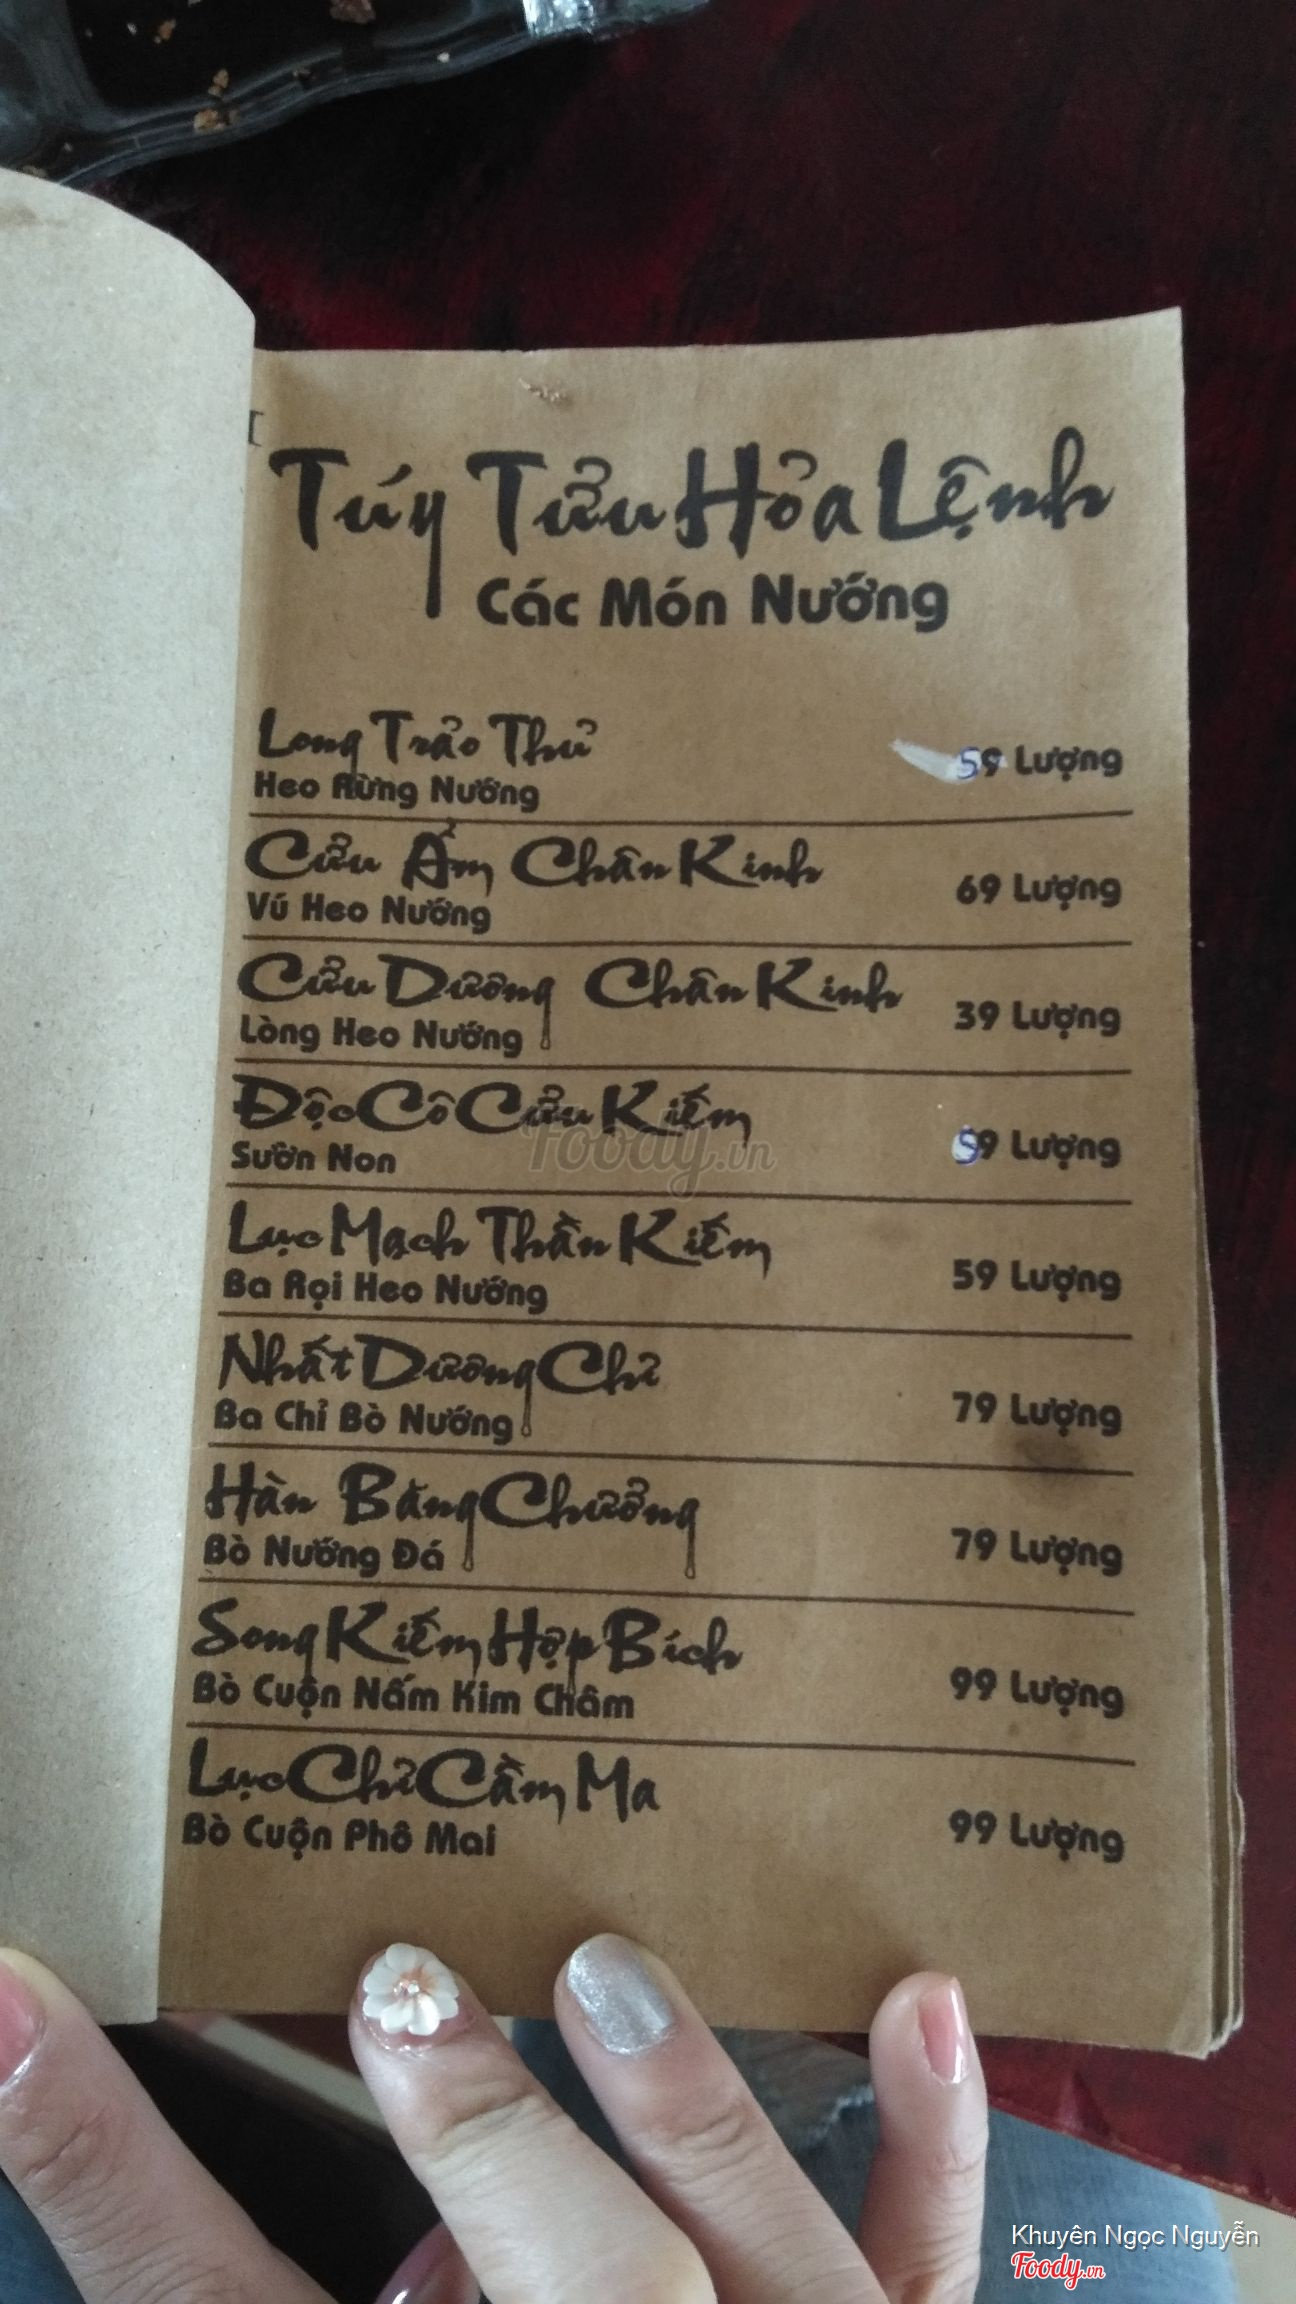 Túy Tửu Hỏa Lệnh
Các Món Nướng
Long Trảo Thủ
Heo Rừng Nướng
59 Lượng
Cửu Ẩm Chân Kinh
Vú Heo Nướng
69 Lượng
Cửu Dương Chân Kinh
Lòng Heo Nướng
39 Lượng
Độc Cô Cửu Kiếm
Sườn Non
59 Lượng
Lục Mạch Thần Kiếm
Ba Rọi Heo Nướng
59 Lượng
Nhất Dương Chỉ
Ba Chỉ Bò Nướng
79 Lượng
Hàn Băng Chưởng
Bò Nướng Đá
79 Lượng
Song Kiếm Hợp Bích
Bò Cuộn Nấm Kim Châm
99 Lượng
Lục Chỉ Cầm Ma
Bò Cuộn Phô Mai
99 Lượng
Foody.vn
Khuyên Ngọc Nguyễn
Foody.vn